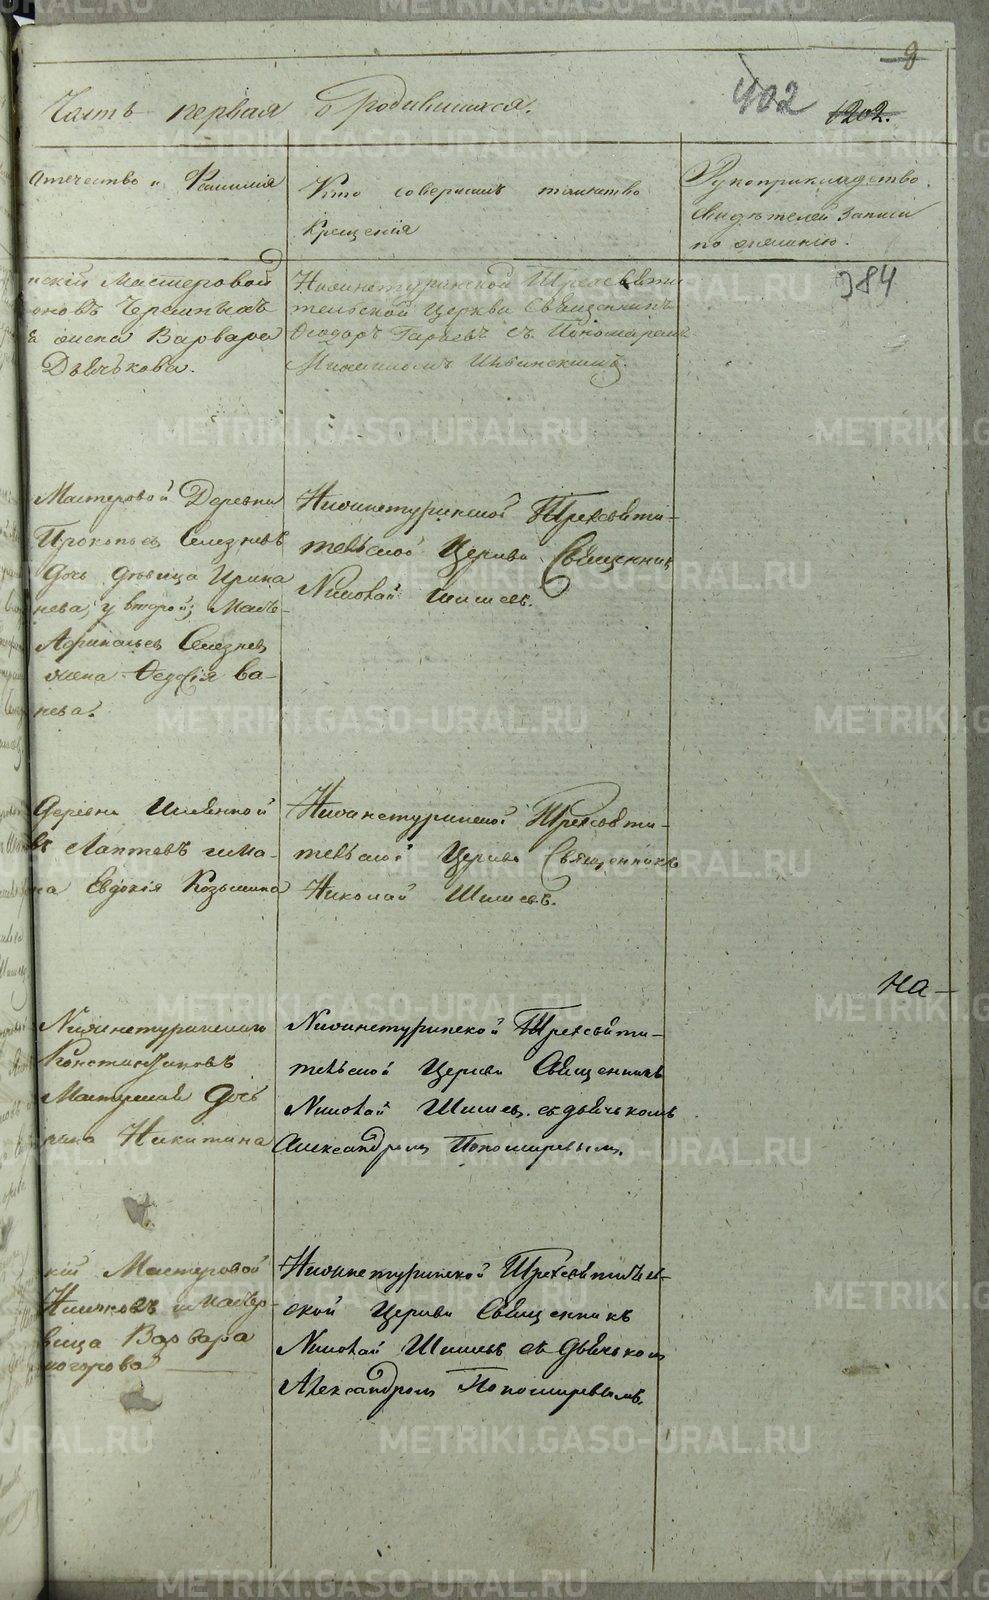 9
Часть первая о родившихся.
402 1202.
отечество и Фамилія
Кто совершалъ таинство
крещенія
Рукоприкладство
свидѣтелей записи
по желанію.
384
нскій Мастеровой
оновъ Черныхъ
жена Варвара
Дьячькова.
Нижнетуринской Трехсвяти
тельской Церкви Священникъ
Ѳеодоръ съ Пономаремъ
Мастеровой Деревни
Прокопьевъ Селезневъ
дочь дѣвица Ирина
нева, у второй; Масте-
Селезнев
жена Ѳедосія Ва-
нева.
Нижнетуринской Трехсвяти-
тельской Церкви Священник
Николай Шишев.
деревни
въ Лаптевъ и
на Евдокія Козьмина
Нижнетуринской Трехсвяти-
тельской Церкви Священникъ
Николай Шишевъ.
На-
Нижнетуринскаго
Константиновъ
дочь
Никитина
Нижнетуринской Трехсвяти-
тельской Церкви Священникъ
Николай Шишев. съ дьячькомъ
Александром Пономаревым.
кій Мастеровой
вица Варвара
ногорова
Нижнетуринской Трехсвятитель-
ской Церкви Священникъ
Николай Шишев съ дьячьком
Александром Пономаревымъ.
METRIKI.GASO-URAL.RU